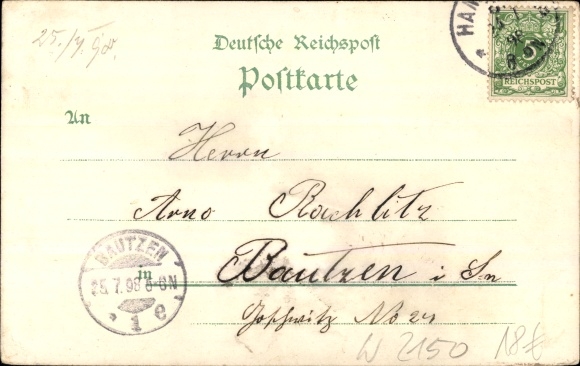 25./7.98.
Deutsche Reichspost
Postkarte
HAM
5
REICHSPOST
An
Herrn
Arno Rachlitz
BAUTZEN
25.7.98 6-8N
1 e
in
Bautzen i Sn
No 24
W 2150 18€